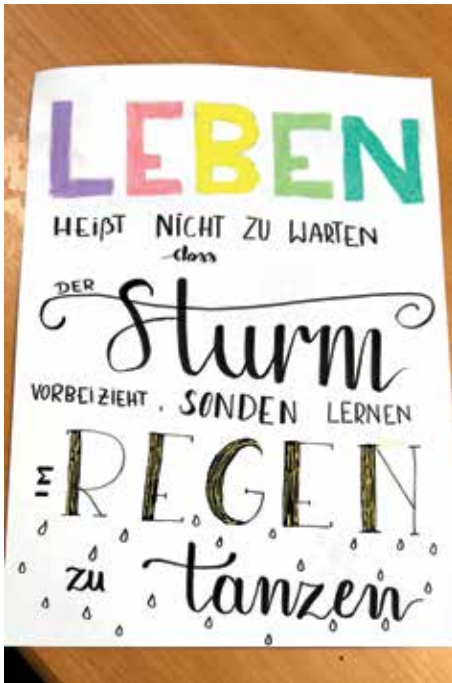 LEBEN
HEIßT NICHT ZU WARTEN
dass
DER
Sturm
VORBEIZIEHT, SONDEN LERNEN
IM REGEN
zu tanzen